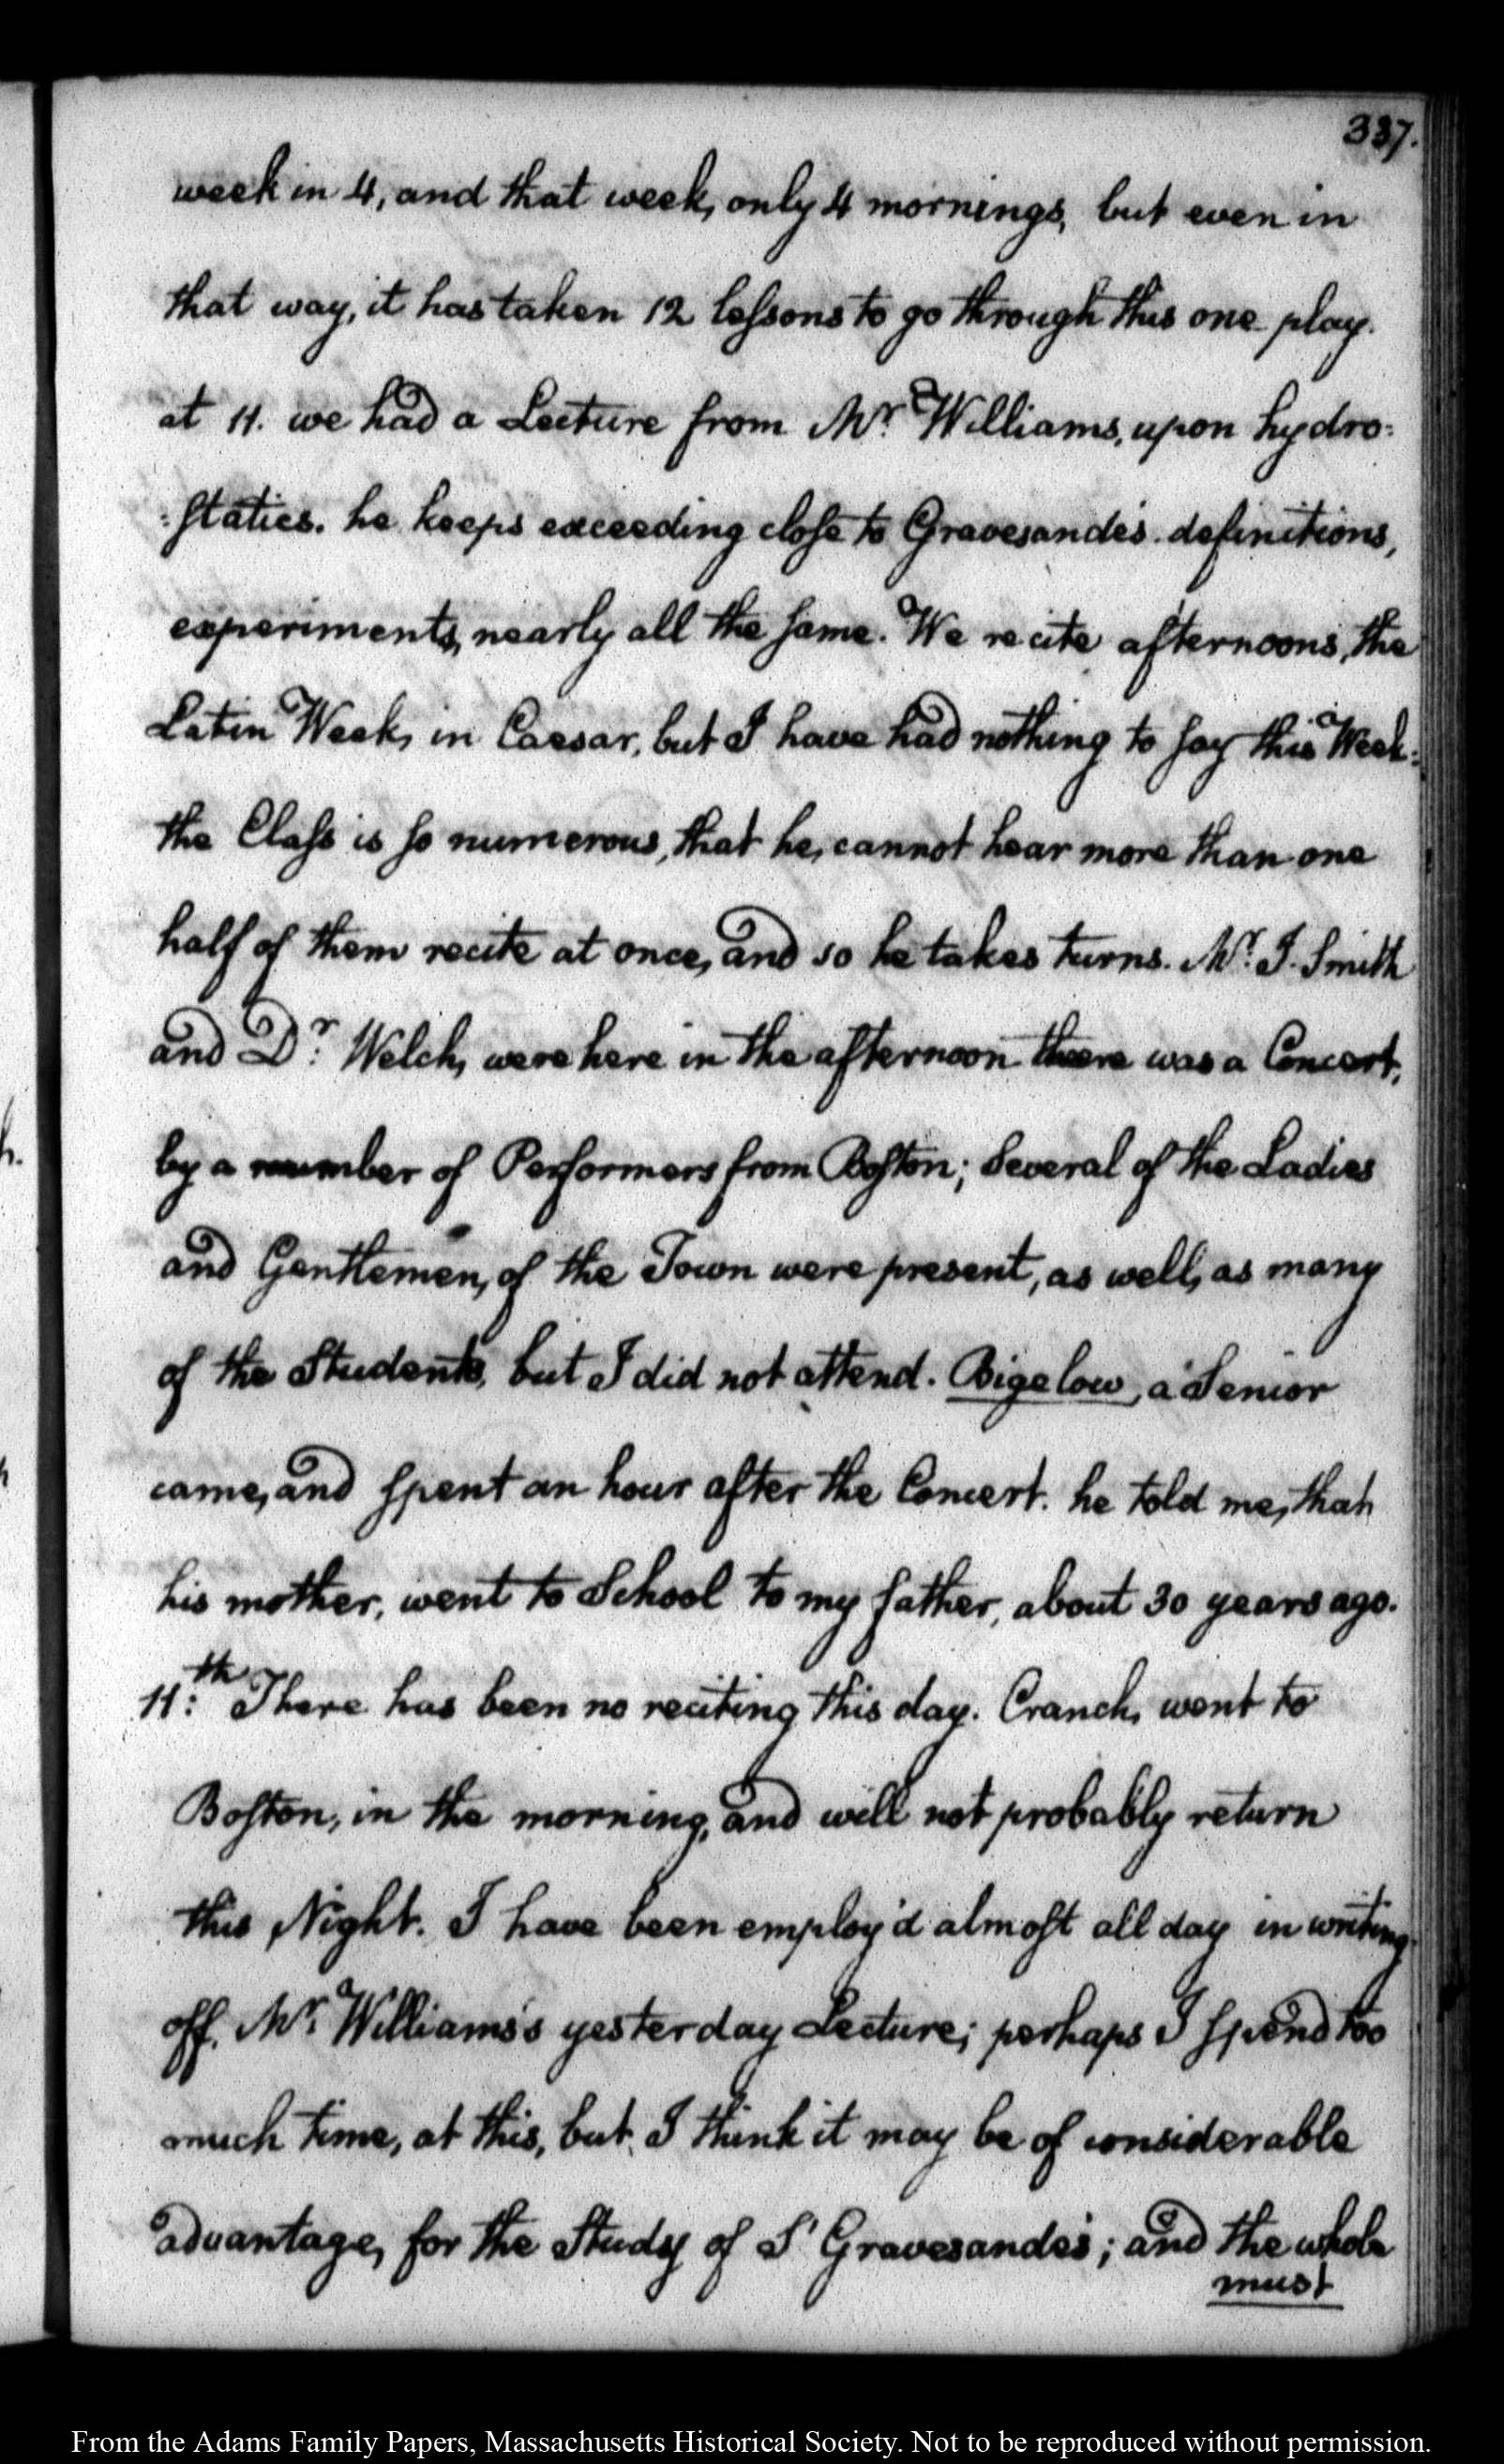 337.
week in 4, and that week, only 4 mornings, but even in
that way, it has taken 12 leſsons to go through this one play.
at 11. we had a Lecture from Mr. Williams, upon hydro=
=ſtatics. he keeps exceeding cloſe to Gravesande's definitions,
experiments, nearly all the ſame. We recite afternoons, the
Latin Week, in Caesar, but I have had nothing to ſay this Week:
the Claſs is ſo numerous, that he, cannot hear more than one
half of them recite at once, and so he takes turns. Mr. I. Smith
and Dr. Welch, were here in the afternoon there was a Concert,
by a number of Performers from Boſton; Several of the Ladies
and Gentlemen, of the Town were present, as well, as many
of the Students, but I did not attend. Bigelow, a Senior
came, and ſpent an hour after the Concert. he told me, that
his mother, went to School to my father, about 30 years ago.
11:th There has been no reciting this day. Cranch, went to
Boſton, in the morning, and will not probably return
this Night. I have been employ'd almoſt all day in writing
off, Mr. Williams's yesterday Lecture; perhaps I ſpend too
much time, at this, but I think it may be of considerable
advantage, for the Study of S' Gravesande's; and the whole
must
From the Adams Family Papers, Massachusetts Historical Society. Not to be reproduced without permission.